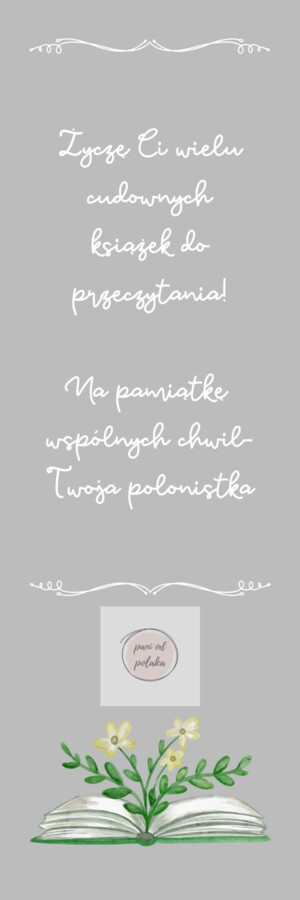 Życzę Ci wielu
cudownych
książek do
przeczytania!
Na pamiątkę
wspólnych chwil-
Twoja polonistka
pani od
polaka